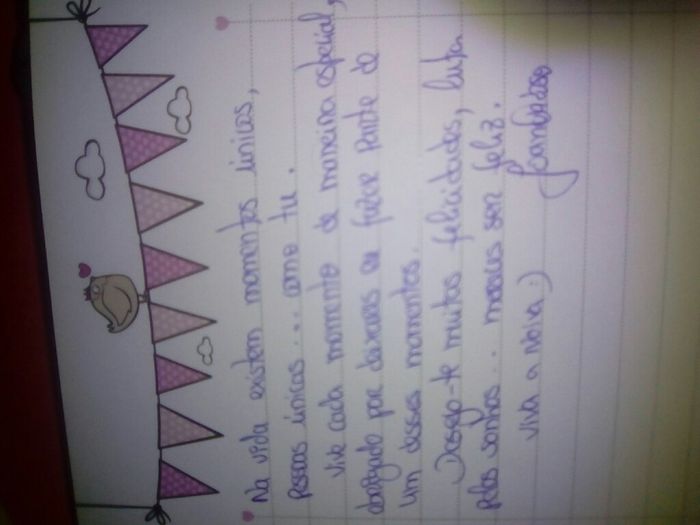 Na vida existem momentos únicos,
pessoas únicas... como tu.
Vive cada momento de maneira especial,
obrigado por deixares eu fazer parte de
um desses momentos.
Desejo-te muitas felicidades, luta
pelos sonhos.. mereces ser feliz.
Viva a noiva :)